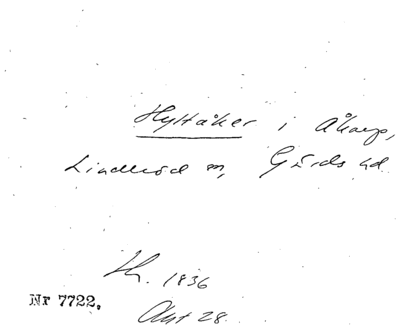 Hyltåker i Åkarp,
Lindleröd m, Gärds hd
Lh. 1836
Akt 28.
Nr 7722.